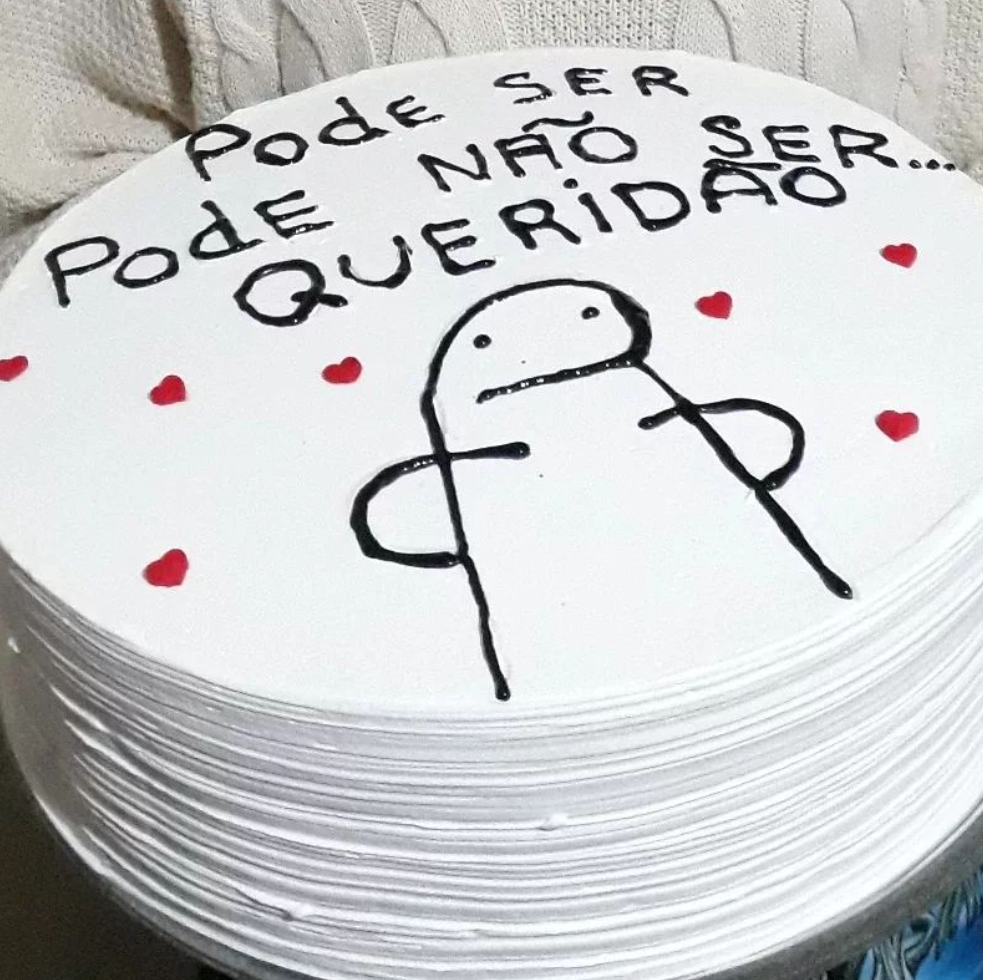 PodE SER
PodE NÃO SER...
QUERiDÃO